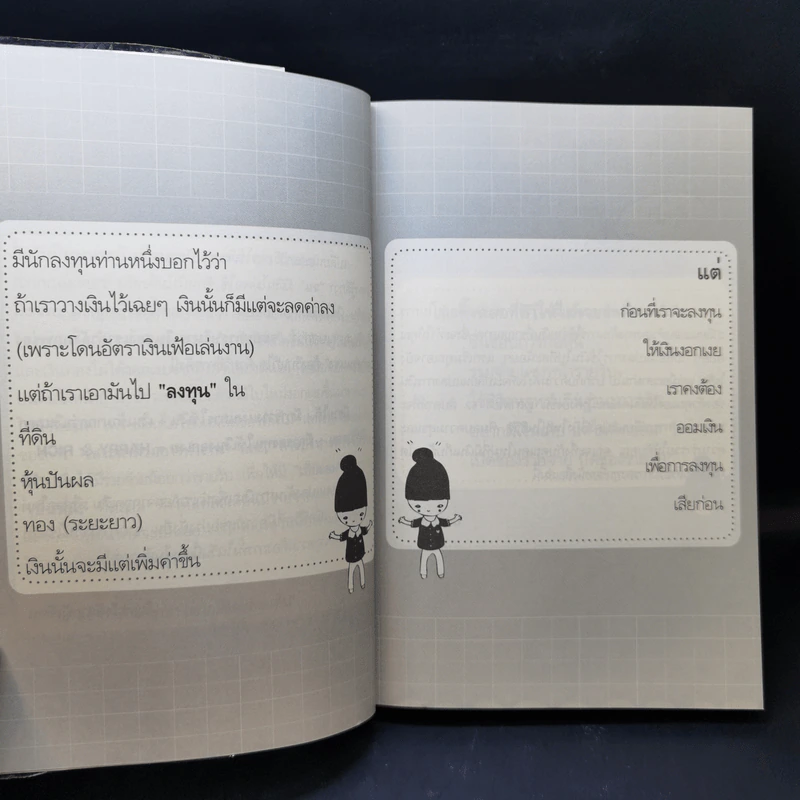 มีนักลงทุนท่านหนึ่งบอกไว้ว่า
ถ้าเราวางเงินไว้เฉยๆ เงินนั้นก็มีแต่จะลดค่าลง
(เพราะโดนอัตราเงินเฟ้อเล่นงาน)
แต่ถ้าเราเอามันไป "ลงทุน" ใน
ที่ดิน
หุ้นปันผล
ทอง (ระยะยาว)
เงินนั้นจะมีแต่เพิ่มค่าขึ้น
แต่
ก่อนที่เราจะลงทุน
ให้เงินงอกเงย
เราคงต้อง
ออมเงิน
เพื่อการลงทุน
เสียก่อน